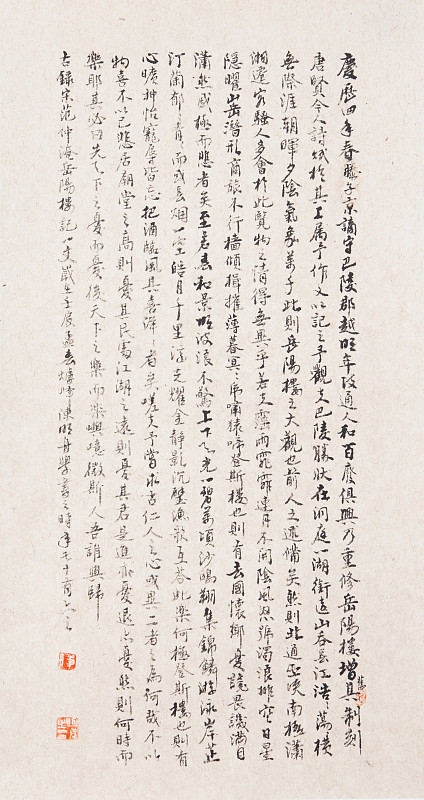 慶歷四年春滕子京謫守巴陵郡越明年政通人和百廢俱興乃重修岳陽樓增其舊制刻
唐賢今人詩賦於其上屬予作文以記之予觀夫巴陵勝狀在洞庭一湖銜遠山吞長江浩〻蕩〻橫
無際涯朝暉夕陰氣象萬千此則岳陽樓之大觀也前人之述備矣然則北通巫峽南極瀟
湘遷客騷人多會於此覽物之情得無異乎若夫霪雨霏霏連月不開陰風怒號濁浪排空日星
隱曜山岳潛形商旅不行檣傾楫摧薄暮冥〻虎嘯猿啼登斯樓也則有去國懷鄉憂讒畏譏滿目
瀟然感極而悲者矣至若春和景明波浪不驚上下天光一碧萬頃沙鷗翔集錦鱗游泳岸芷
汀蘭郁〻青〻而或長烟一空皓月千里浮光耀金靜影沉璧漁歌互答此樂何極登斯樓也則有
心曠神怡寵辱皆忘把酒臨風其喜洋〻者矣嗟夫予嘗求古仁人之心或異二者之為何哉不以
物喜不以己悲居廟堂之高則憂其民處江湖之遠則憂其君是進亦憂退亦憂然則何時而
樂耶其必曰先天下之憂而憂後天下之樂而樂歟噫微斯人吾誰與歸
古錄宋范仲淹岳陽樓記一文歲在壬辰孟春陳明舟學書之時年七十有六